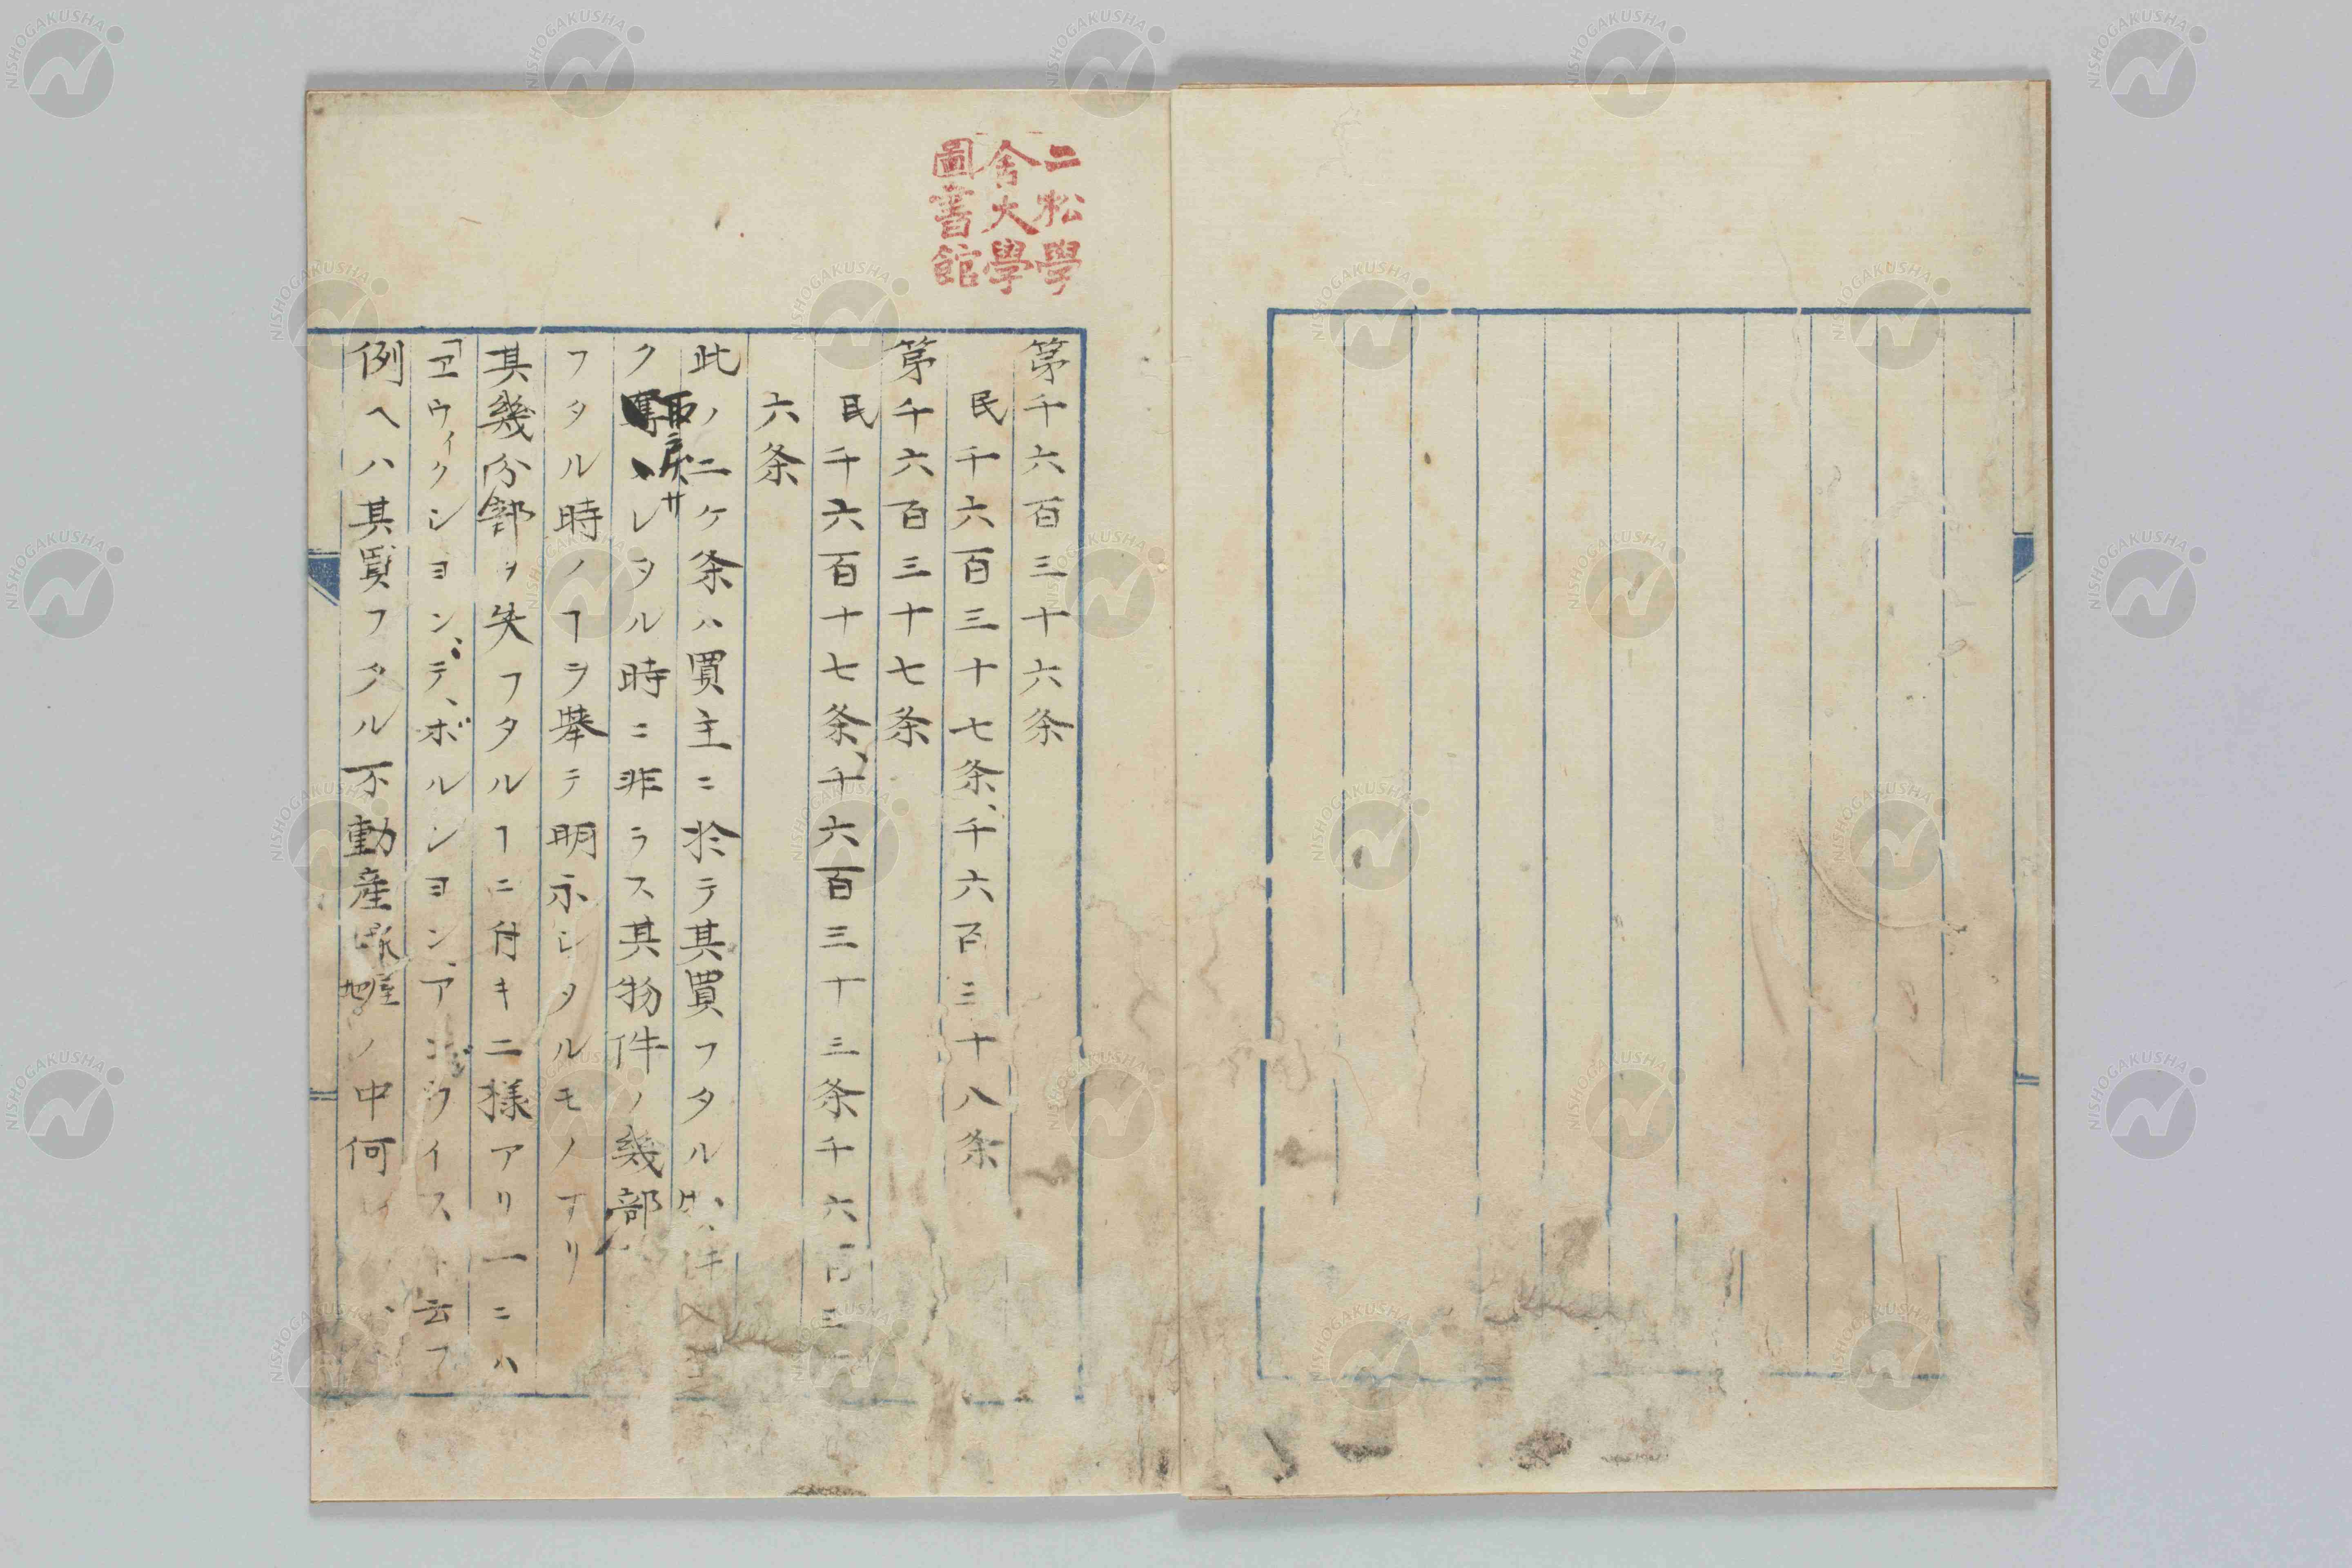 二松學
舍大學
圖書館
第千六百三十六条
民千六百三十七条、千六百三十八条
第千六百三十七条
民千六百十七条、千六百三十三条千六百三
六条
此ノ二ケ条ハ買主ニ於テ其買フタル
ク取戻サレタル時ニ非ラス其物件ノ幾部
フタル時ノヿヲ挙テ明示シタルモノナリ
其幾分部ヲ失フタルヿニ付キ二様アリ一ニハ
「エウィクションデ、ボルションアコヴウイス」ト云フ
例ヘハ其買フタル不動産 ノ中何
NISHOGAKUSHA